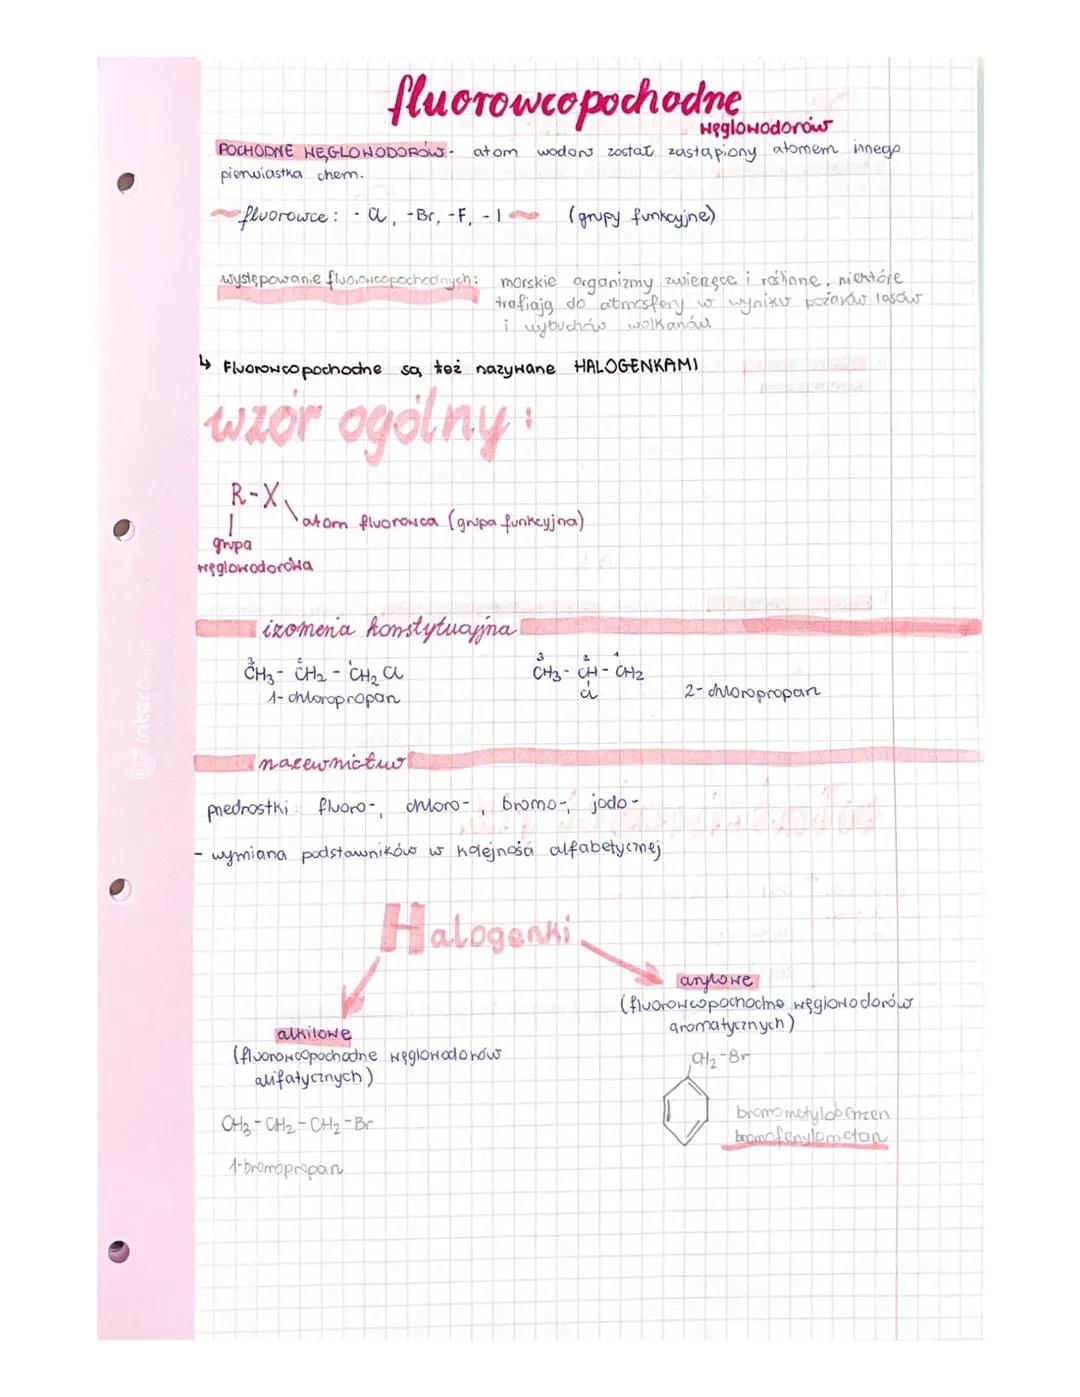 fluorowcopochodne
węglowodorów
POCHODNE WĘGLOWODORÓW - atom wodoru został zastąpiony atomem innego
pierwiastka chem.
fluorowce: -Cl, -Br, -F, -I (grupy funkcyjne)
występowanie fluorowcopochodnych: morskie organizmy zwierzęce i roślinne, niektóre
trafiają do atmosfery w wyniku pożarów lasów
i wybuchów wolkanów
↳ Fluorowcopochodne są też nazywane HALOGENKAMI
wzór ogólny:
R-X
atom fluorowca (grupa funkcyjna)
grupa
węglowodorowa
izomeria konstytucyjna
3 2 1
CH3 - CH2 - CH2 Cl
1-chloropropan
3 2 1
CH3 - CH - CH2
Cl
2-chloropropan
nazewnictwo
przedrostki: fluoro-, chloro-, bromo-, jodo-
- wymiana podstawników w kolejności alfabetycznej
Halogenki
alkilowe
(fluorowcopochodne węglowodorów
alifatycznych)
CH3-CH2-CH2-Br
1-bromopropan
arylowe
(fluorowcopochodne węglowodorów
aromatycznych)
CH2-Br
bromometylobenzen
bromofenylometan
interdruk